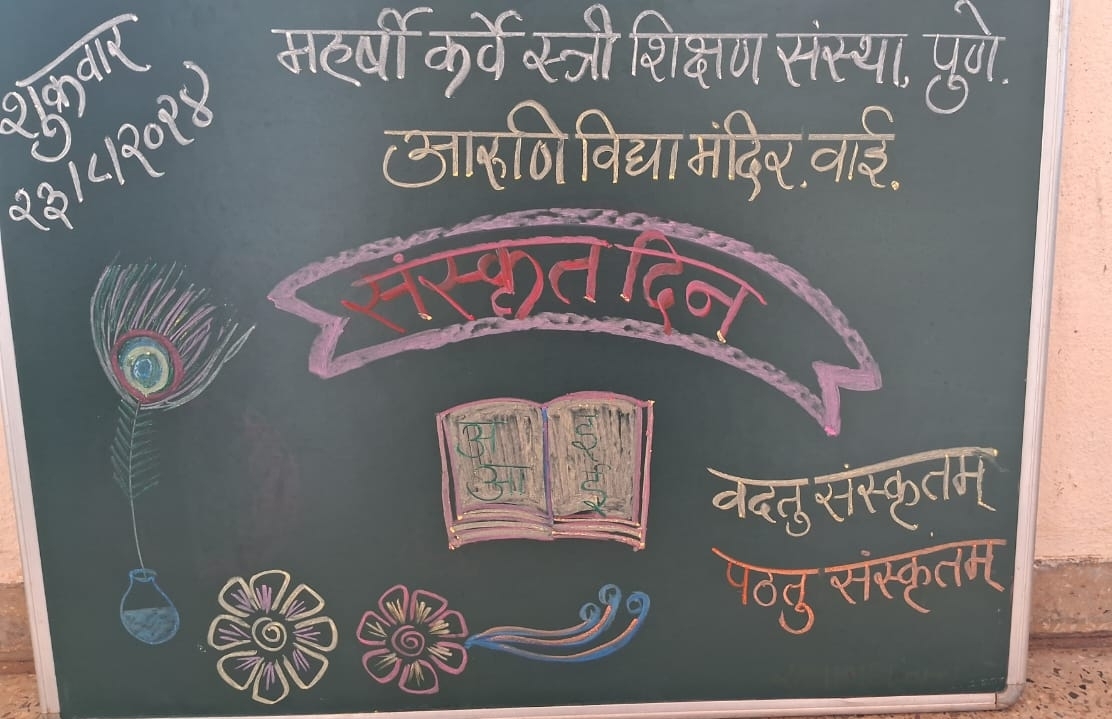 शुक्रवार
२३।८।२०२४
महर्षी कर्वे स्त्री शिक्षण संस्था, पुणे.
आरुणि विद्या मंदिर, वाई.
संस्कृत दिन
अ
आ
वदतु संस्कृतम्
पठतु संस्कृतम्